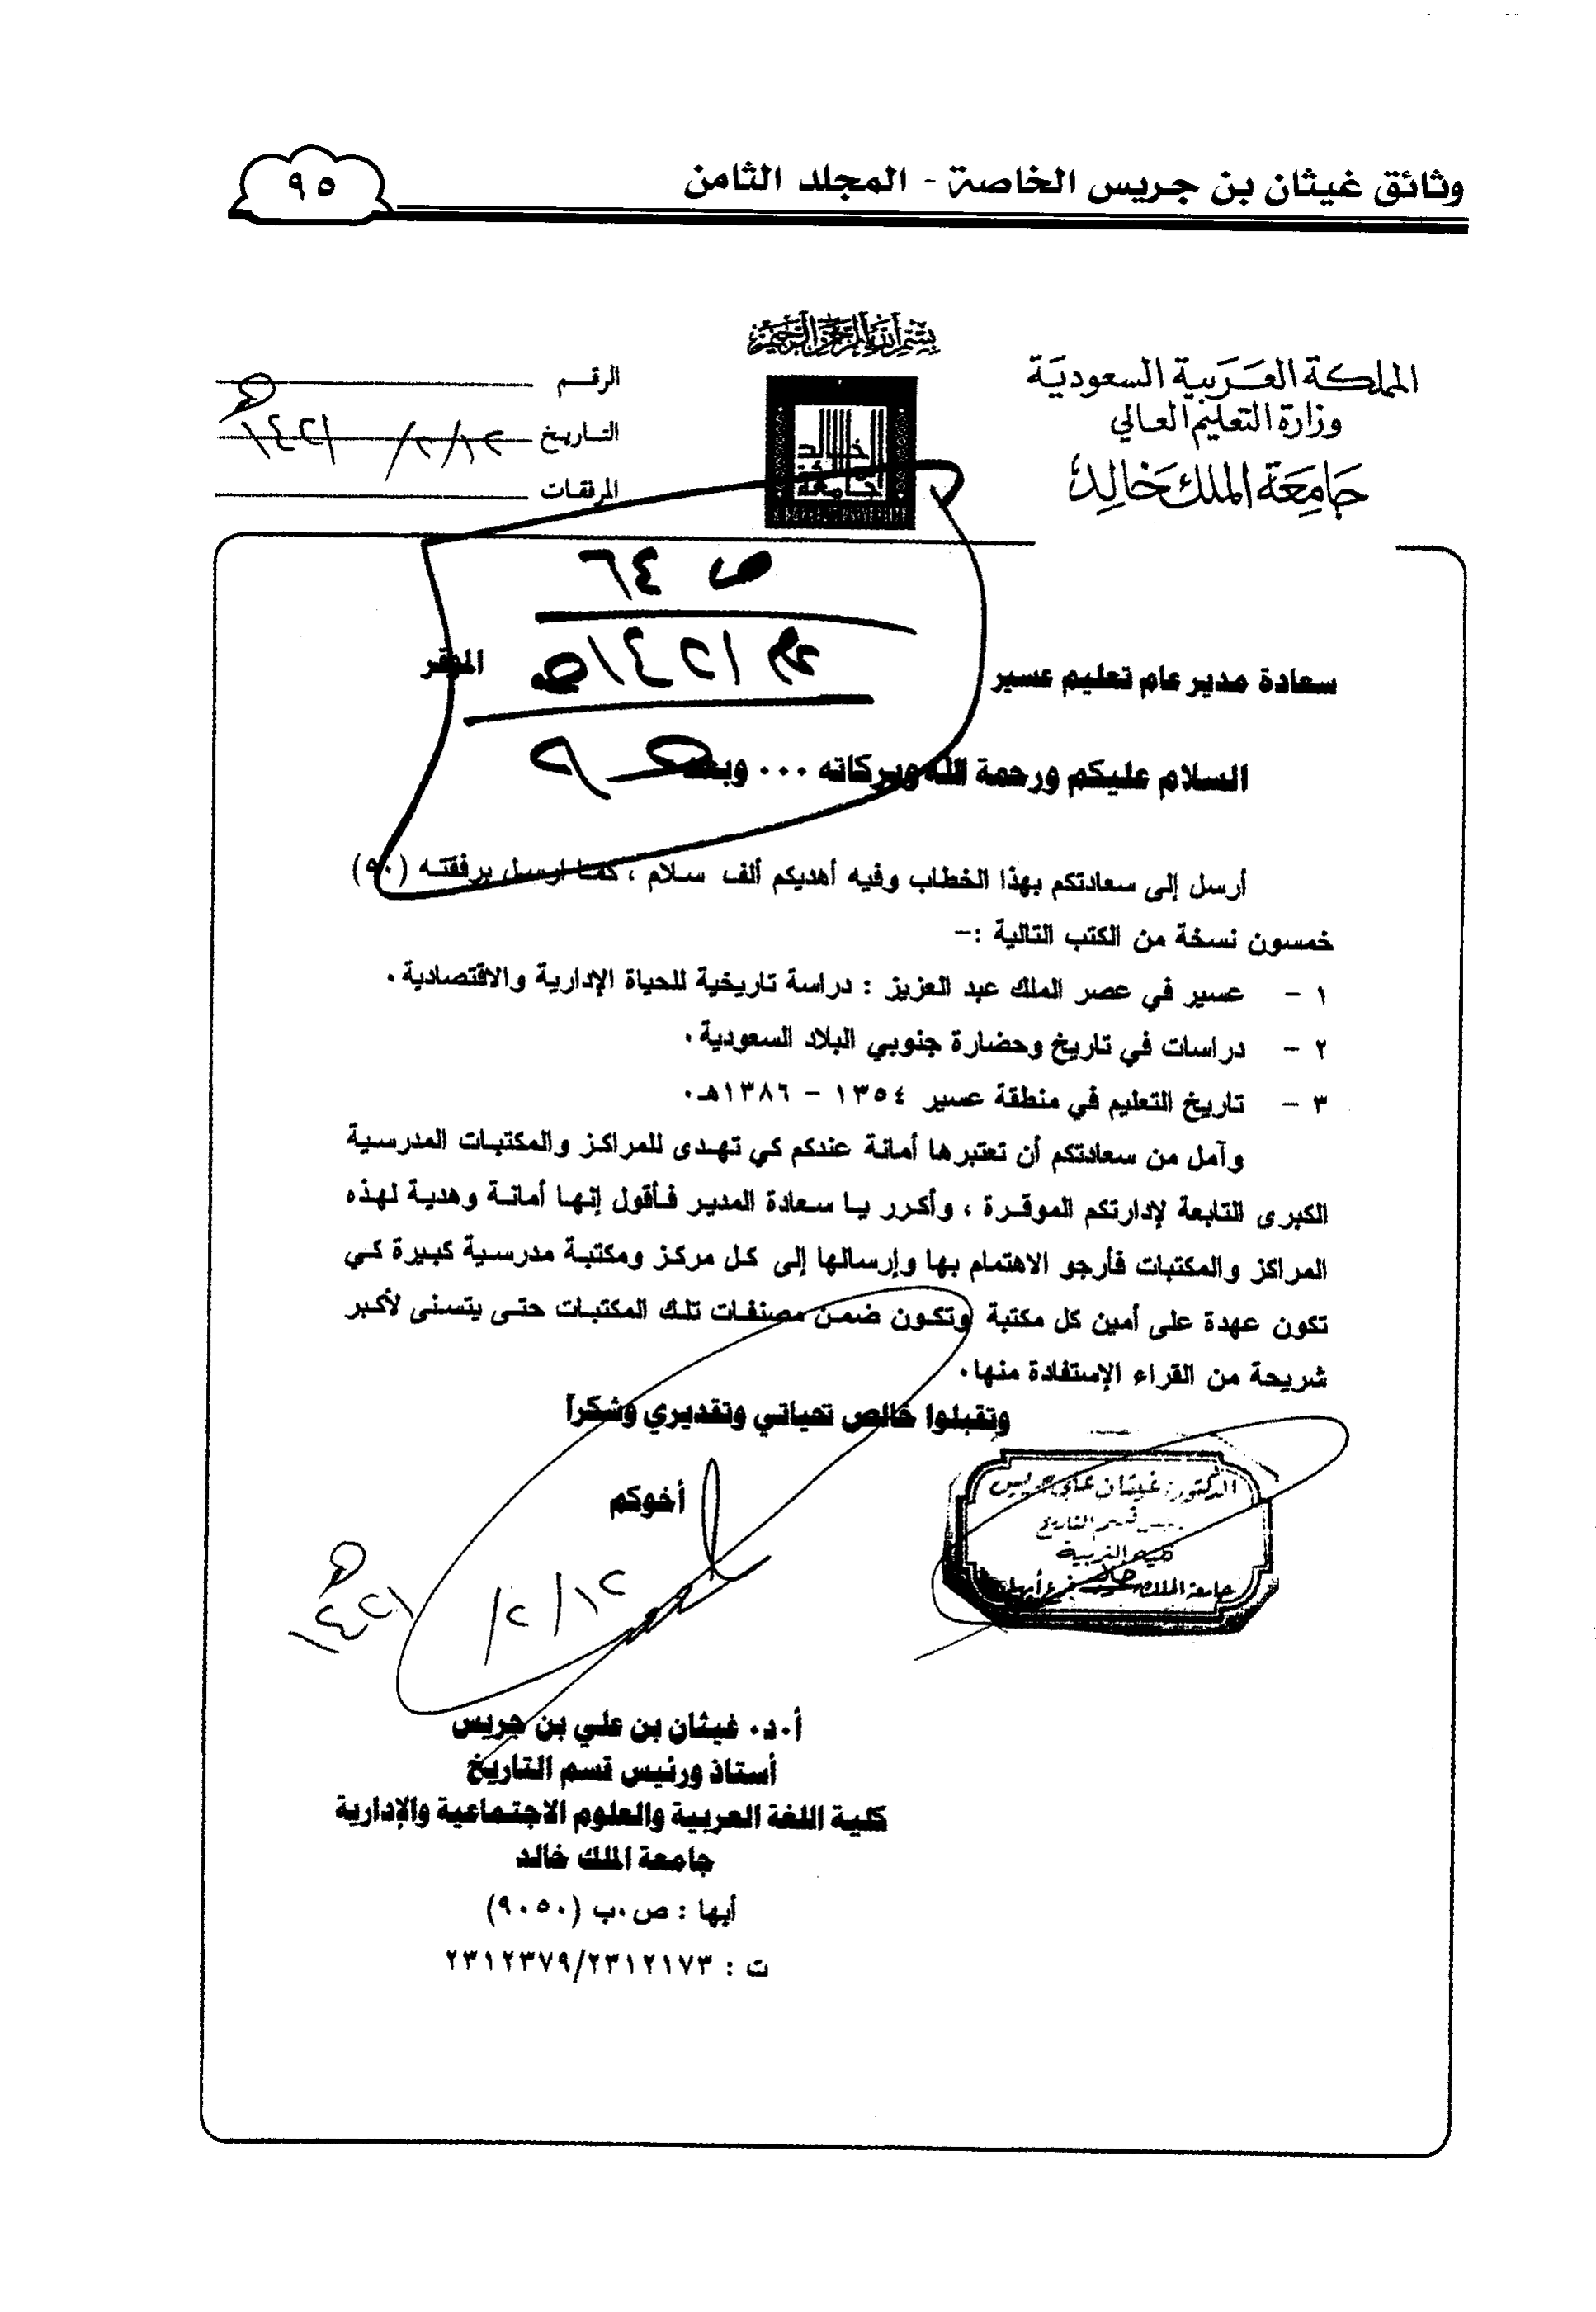 وثائق غيثان بن جريس الخاصة - المجلد الثامن
٩٥
بسم الله الرحمن الرحيم
المملكة العربية السعودية
وزارة التعليم العالي
جامعة الملك خالد
الرقم
التاريخ ١٢/٢/١٤٢١هـ
المرفقات
ص ٦٤
سعادة مدير عام تعليم عسير الموقر
السلام عليكم ورحمة الله وبركاته ... وبعد
أرسل إلى سعادتكم بهذا الخطاب وفيه أهديكم ألف سلام ، كما ارسل برفقته (٥٠)
خمسون نسخة من الكتب التالية :-
١ - عسير في عصر الملك عبد العزيز : دراسة تاريخية للحياة الإدارية والاقتصادية .
٢ - دراسات في تاريخ وحضارة جنوبي البلاد السعودية .
٣ - تاريخ التعليم في منطقة عسير ١٣٥٤ - ١٣٨٦هـ .
وآمل من سعادتكم أن تعتبرها أمانة عندكم كي تهدى للمراكز والمكتبات المدرسية
الكبرى التابعة لإدارتكم الموقرة ، وأكرر يا سعادة المدير فأقول إنها أمانة وهدية لهذه
المراكز والمكتبات فأرجو الاهتمام بها وإرسالها إلى كل مركز ومكتبة مدرسية كبيرة كي
تكون عهدة على أمين كل مكتبة وتكون ضمن مصنفات تلك المكتبات حتى يتسنى لأكبر
شريحة من القراء الإستفادة منها .
وتقبلوا خالص تحياتي وتقديري وشكراً
أخوكم
١٢/٢/١٤٢١هـ
الدكتور غيثان علي جريس
رئيس قسم التاريخ
كلية التربية
جامعة الملك خالد فرع أبها
أ.د. غيثان بن علي بن جريس
أستاذ ورئيس قسم التاريخ
كلية اللغة العربية والعلوم الاجتماعية والإدارية
جامعة الملك خالد
أبها : ص.ب (٩٠٥٠)
ت : ٢٣١٢٣٧٩/٢٣١٢١٧٣